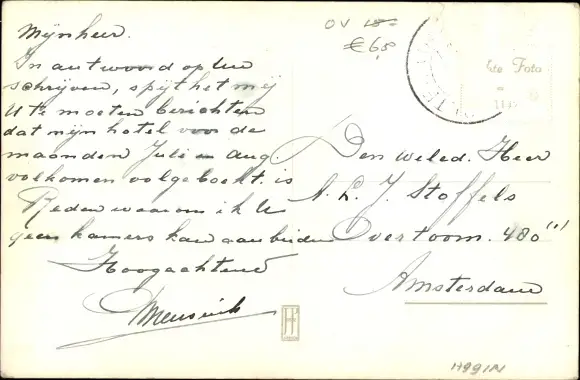 Mijnheer.
In antwoord op Uw
schrijven, spijt het mij
U te moeten berichten
dat mijn hotel voor de
maanden Juli en Aug.
volkomen volgeboekt is
Reden waarom ik U
geen kamers kan aanbieden
Hoogachtend
Den Weled. Heer
A. L. J. Stoffels
Overtoom. 480
Amsterdam
OV 18=
€6,5
Foto
H991N